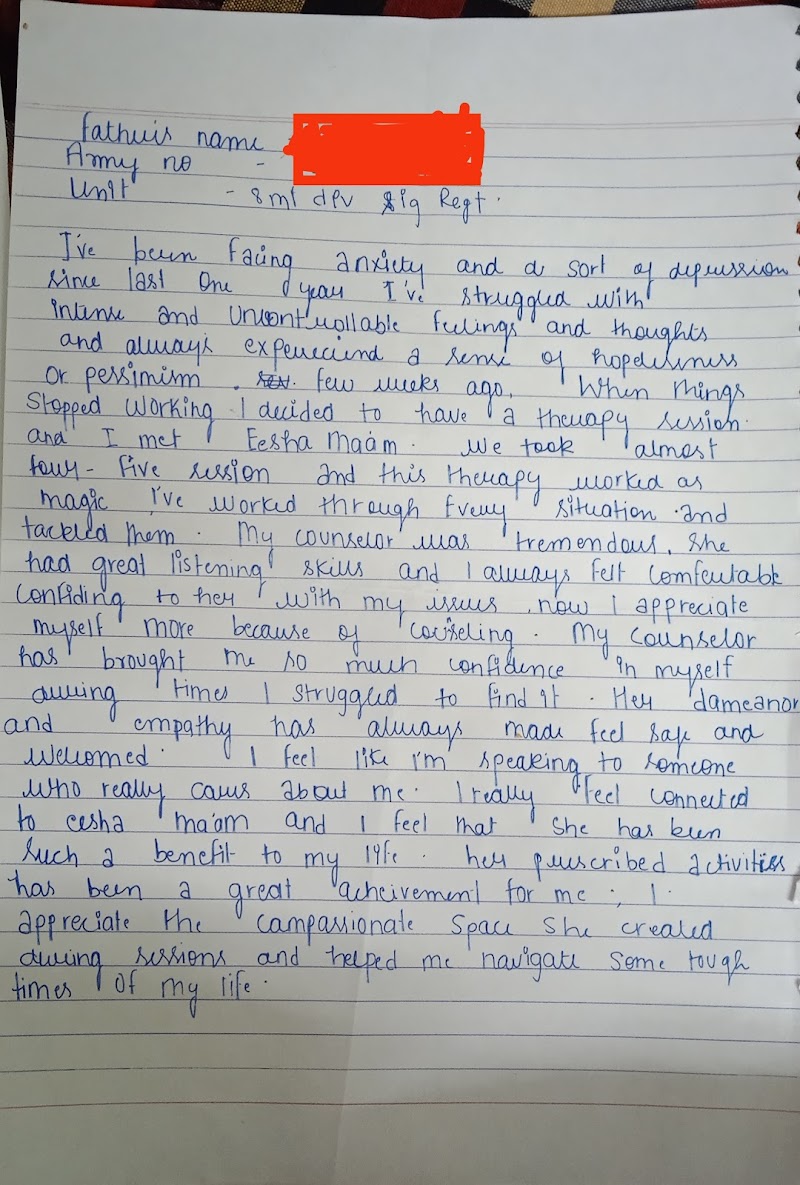 Father's name
Army no -
Unit - 8 mt div sig Regt.
I've been facing anxiety and a sort of depression
since last one year I've struggled with
intense and uncontrollable feelings and thoughts
and always experieciend a sense of hopelessness
or pessimism. few weeks ago, when things
stopped working I decided to have a therapy session.
and I met Eesha Maam. We took almost
four-five session and this therapy worked as
magic I've worked through Every situation and
tackled them. My counselor was tremendous. She
had great listening skills and I always felt comfeutable
confiding to her with my issues, now I appreciate
myself more because of couseling. My counselor
has brought me so much confidence in myself
during times I struggled to find it. Her dameanor
and empathy has always made feel safe and
welcomed. I feel like I'm speaking to someone
who really cares about me. I really feel connected
to eesha ma'am and I feel that she has been
such a benefit to my life. her prescribed activities
has been a great acheivement for me; I.
appreciate the campassionate space she created
during sessions and helped me navigate some tough
times of my life.